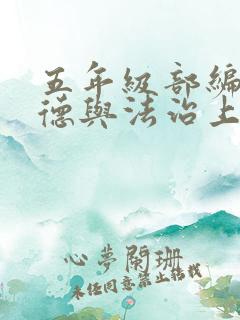 五年級部編
德與法治上
心夢闌珊
未经同意禁止转载